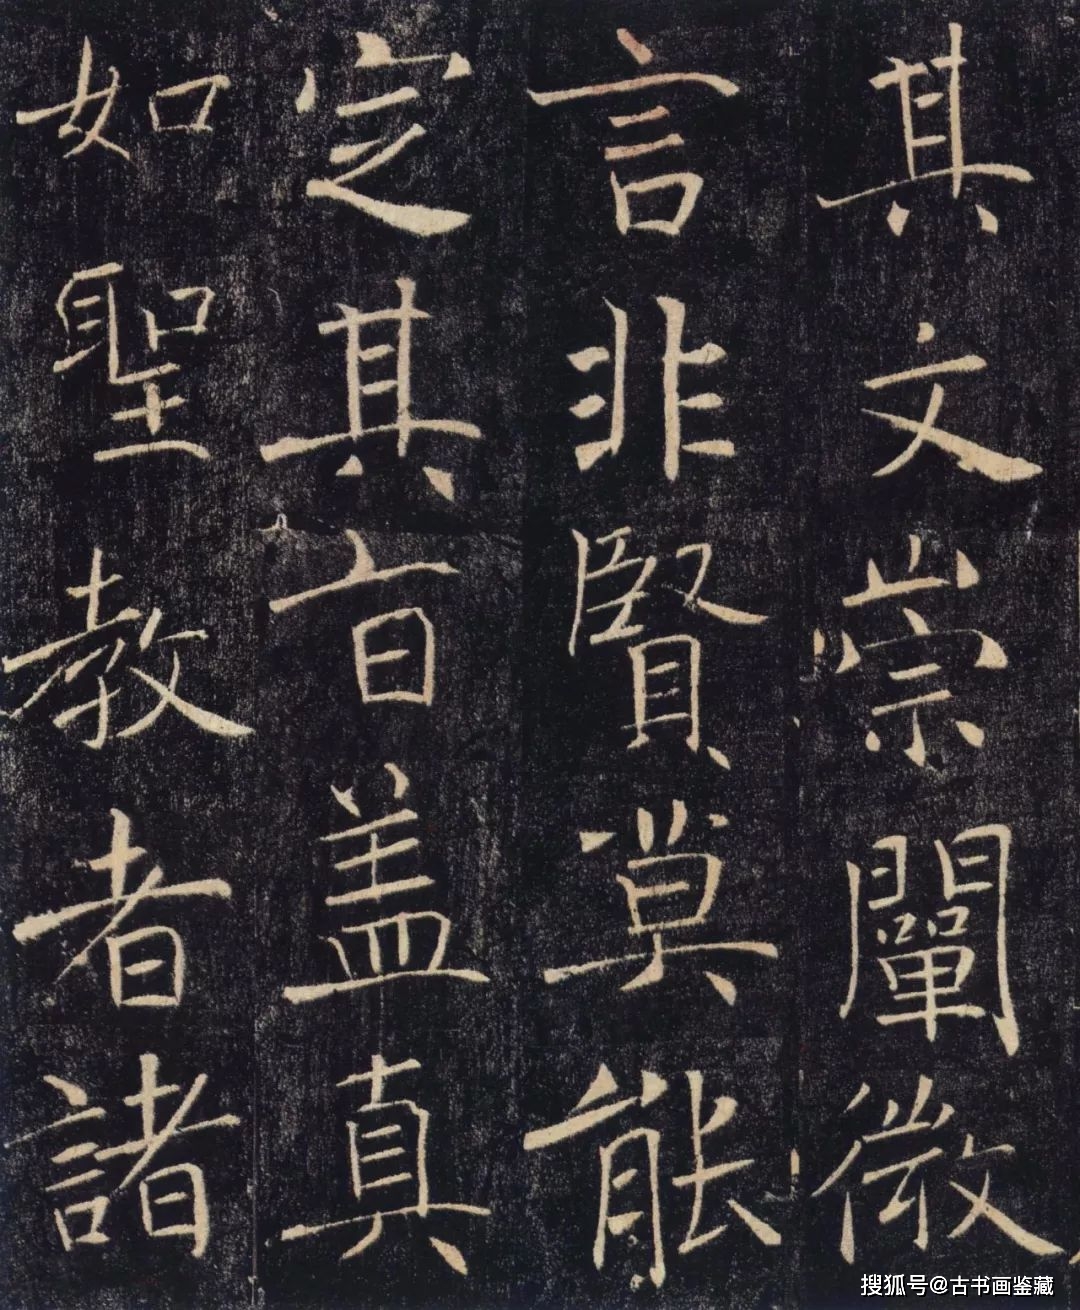 其文崇闡微
言非賢莫能
定其旨盖真
如聖教者諸
搜狐号@古书画鉴藏